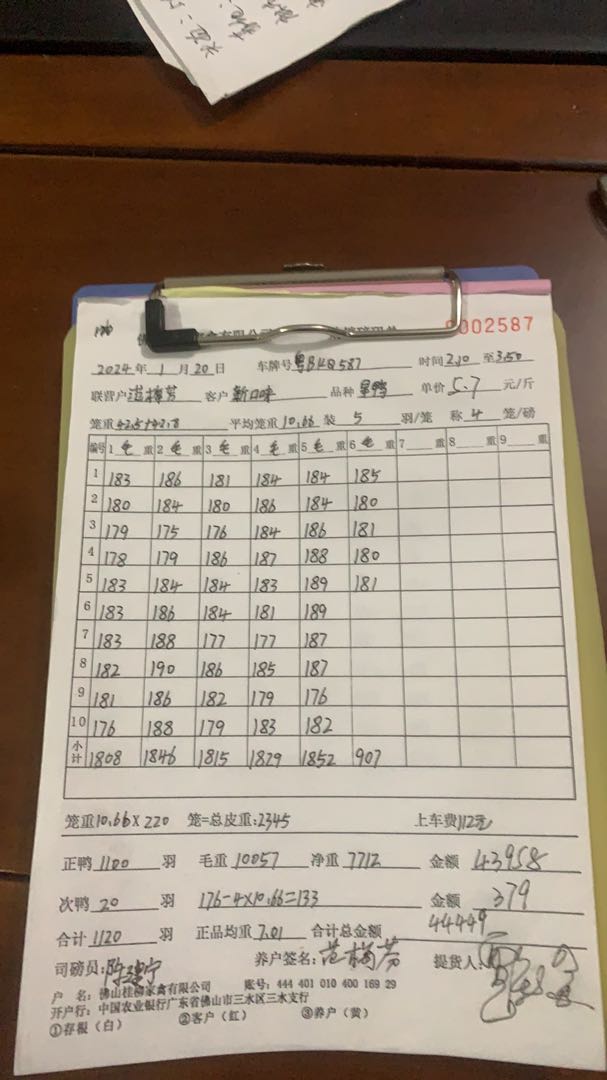 0002587
2024年 1月 20日 车牌号 粤BHQ587 时间 2.10 至 3.50
联营户 范梅芳 客户 新口味 品种 单价 5.7 元/斤
笼重 42.5+42.8 平均笼重 10.66 装 5 羽/笼 称 4 笼/磅
编号 1 毛 重 2 毛 重 3 毛 重 4 毛 重 5 毛 重 6 毛 重 7 重 8 重 9 重
1 183 186 181 184 184 185
2 180 184 180 186 184 180
3 179 175 176 184 186 181
4 178 179 186 187 188 180
5 183 184 184 183 189 181
6 183 186 184 181 189
7 183 188 177 177 187
8 182 190 186 185 187
9 181 186 182 179 176
10 176 188 179 183 182
小计 1808 1846 1815 1829 1852 907
笼重 10.66 X 220 笼=总皮重:2345 上车费 112元
正鸭 1100 羽 毛重 10057 净重 7712 金额 43958
次鸭 20 羽 176-4×10.66=133 金额 379
合计 1120 羽 正品均重 7.01 合计总金额 44449
司磅员: 养户签名: 范梅芳 提货人:
户 名: 佛山桂柳家禽有限公司 账号: 444 401 010 400 169 29
开户行: 中国农业银行广东省佛山市三水区三水支行
①存根（白） ②客户（红） ③养户（黄）